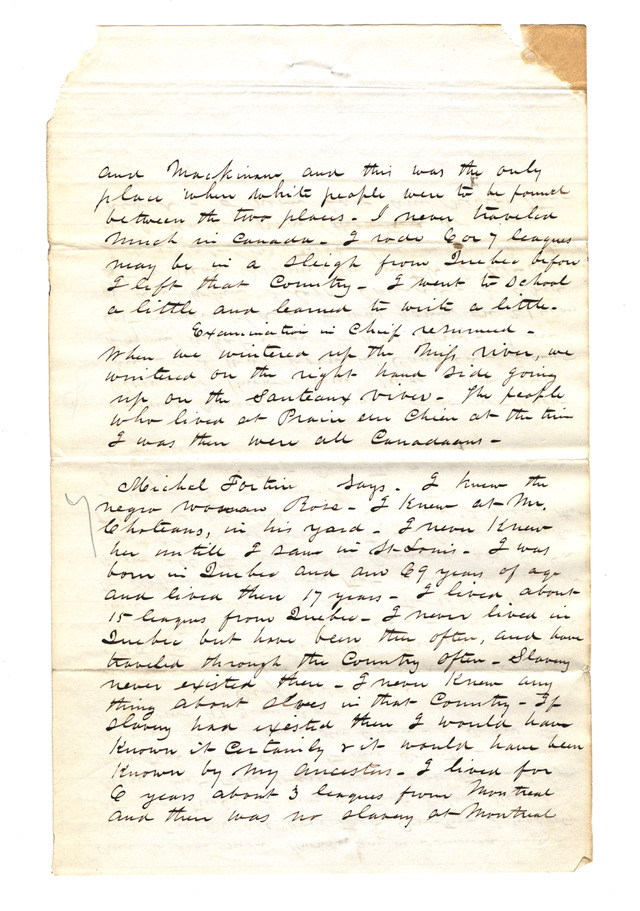 and Mackinaw and this was the only
place when white people were to be found
between the two places - I never traveled
much in Canada - I rode 6 or 7 leagues
may be in a sleigh from Quebec before
I left that Country - I went to School
a little and learned to write a little.
Examination in Chief resumed -
When we wintered up the Miss river, we
wintered on the right hand side going
up on the Santeaux river - The people
who lived at Prairie du Chien at the time
I was then were all Canadaans -
Michel Fortin says - I knew the
negro woman Rose - I knew at Mr.
Choteaus, in his yard - I never knew
her untill I saw in St Louis - I was
born in Quebec and am 69 years of age
and lived then 17 years - I lived about
15 leagues from Quebec - I never lived in
Quebec but have been then often, and have
traveled through the Country often - Slavery
never existed then - I never knew any
thing about slaves in that Country - If
slavery had existed then I would have
known it certainly & it would have been
known by my ancestors - I lived for
6 years about 3 leagues from Montreal
and then was no slavery at Montreal